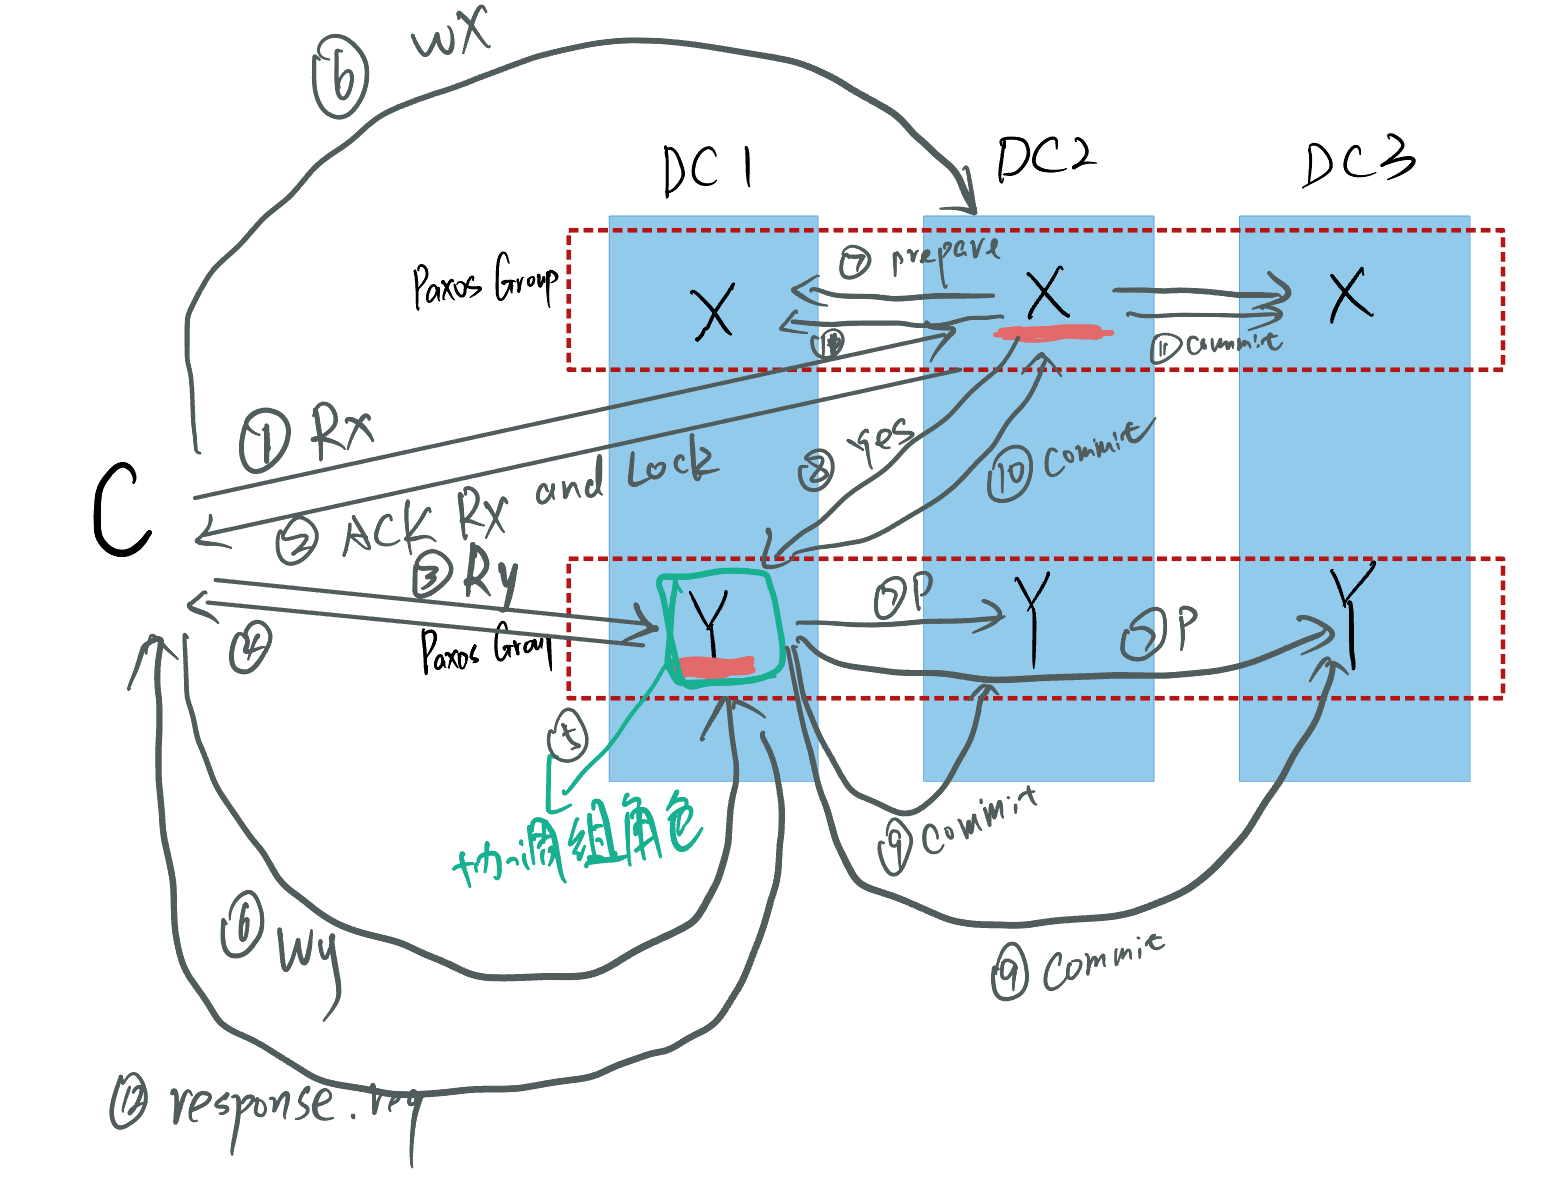 ⑥ WX
DC1 DC2 DC3
Paxos Group
⑦ prepare
X X X
⑪ commit
① Rx
② ACK Rx and Lock
⑧ yes
⑩ Commit
C
③ Ry
④
Paxos Group
Y Y Y
⑦ P
⑦ P
⑤
协调组角色
⑨ Commit
⑥ Wy
⑨ Commit
⑫ response.req